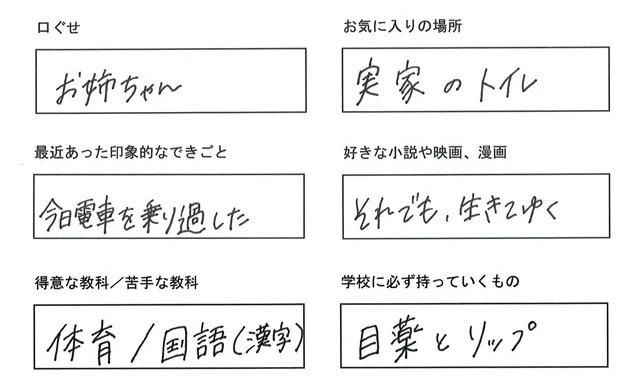 口ぐせ
お姉ちゃん
お気に入りの場所
実家のトイレ
最近あった印象的なできごと
今日電車を乗り過した
好きな小説や映画、漫画
それでも、生きてゆく
得意な教科／苦手な教科
体育／国語(漢字)
学校に必ず持っていくもの
目薬とリップ